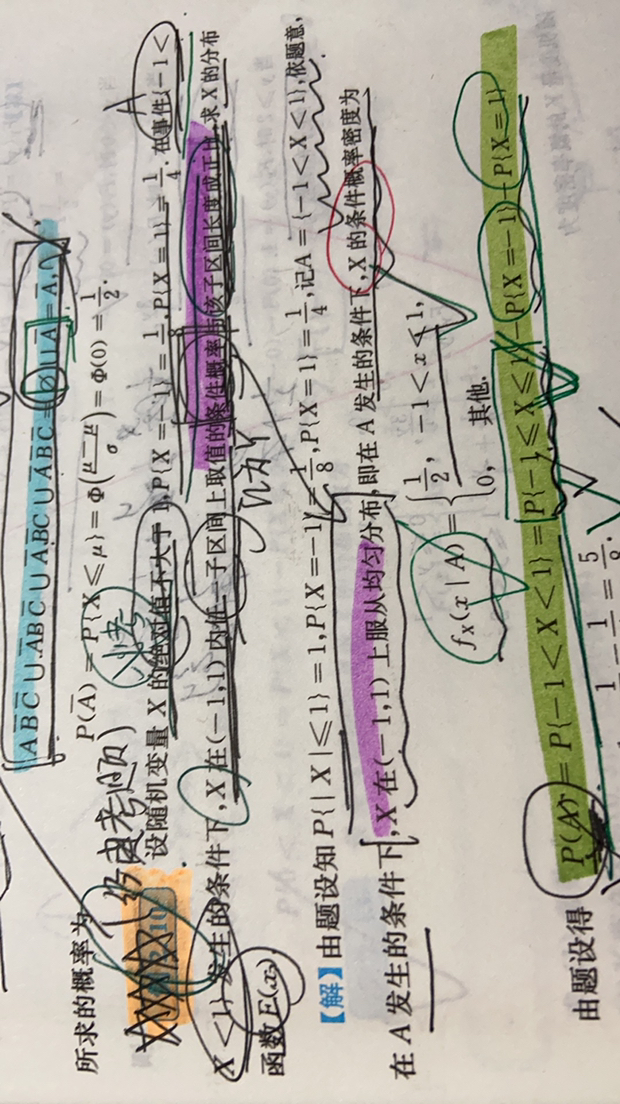 A B̄ C̄ ∪ ĀB C̄ ∪ Ā B̄C ∪ Ā B̄ C̄ = ∅ ∪ Ā = Ā.
所求的概率为
P(Ā) = P{X ≤ μ} = Φ((μ − μ)/σ) = Φ(0) = 1/2.
必考
(经典考题)
10 设随机变量 X 的绝对值不大于 1, P{X = −1} = 1/8, P{X = 1} = 1/4. 在事件{−1 <
A
X < 1}发生的条件下, X 在(−1,1)内任一子区间上取值的条件概率与该子区间长度成正比, 求 X 的分布
函数 F(x).
【解】由题设知 P{| X | ≤ 1} = 1, P{X = −1} = 1/8, P{X = 1} = 1/4, 记A = {−1 < X < 1}, 依题意,
在 A 发生的条件下, X 在(−1,1)上服从均匀分布, 即在 A 发生的条件下, X 的条件概率密度为
f_X(x | A) = { 1/2, −1 < x < 1,
0, 其他.
由题设得
P(A) = P{−1 < X < 1} = P{−1 ≤ X ≤ 1} − P{X = −1} − P{X = 1}
= 5/8